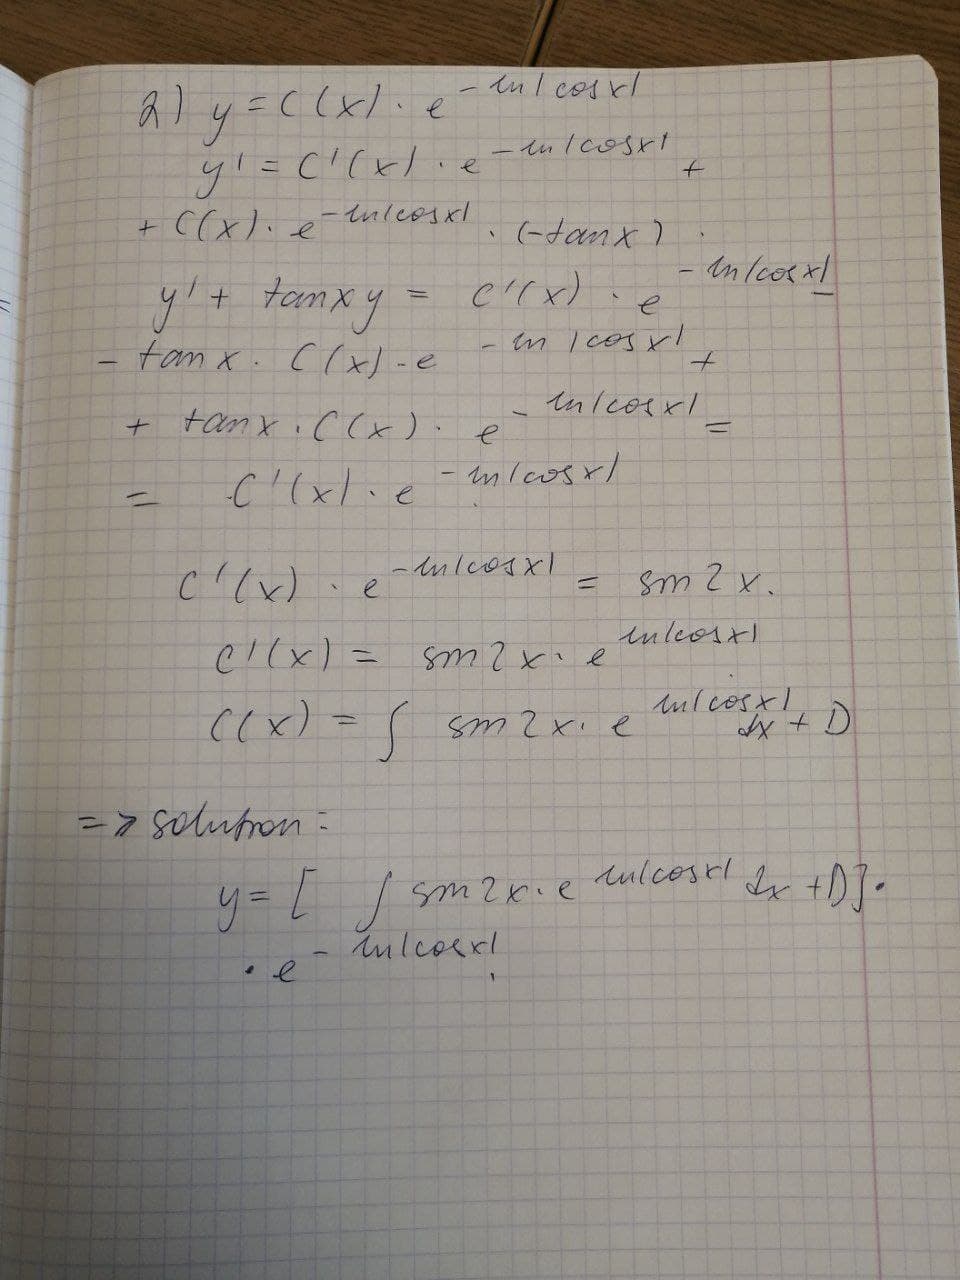 2) y = C(x) · e^{-ln|cosx|}
y' = C'(x) · e^{-ln|cosx|} +
+ C(x) · e^{-ln|cosx|} · (-tanx) .
y' + tanx y = C'(x) · e^{-ln|cosx|} -
- tanx · C(x) · e^{-ln|cosx|} +
+ tanx · C(x) · e^{-ln|cosx|} =
= C'(x) · e^{-ln|cosx|}
C'(x) · e^{-ln|cosx|} = sin2x.
C'(x) = sin2x · e^{ln|cosx|}
C(x) = ∫ sin2x · e^{ln|cosx|} dx + D
=> solution:
y = [ ∫ sin2x · e^{ln|cosx|} dx + D] ·
· e^{-ln|cosx|}.